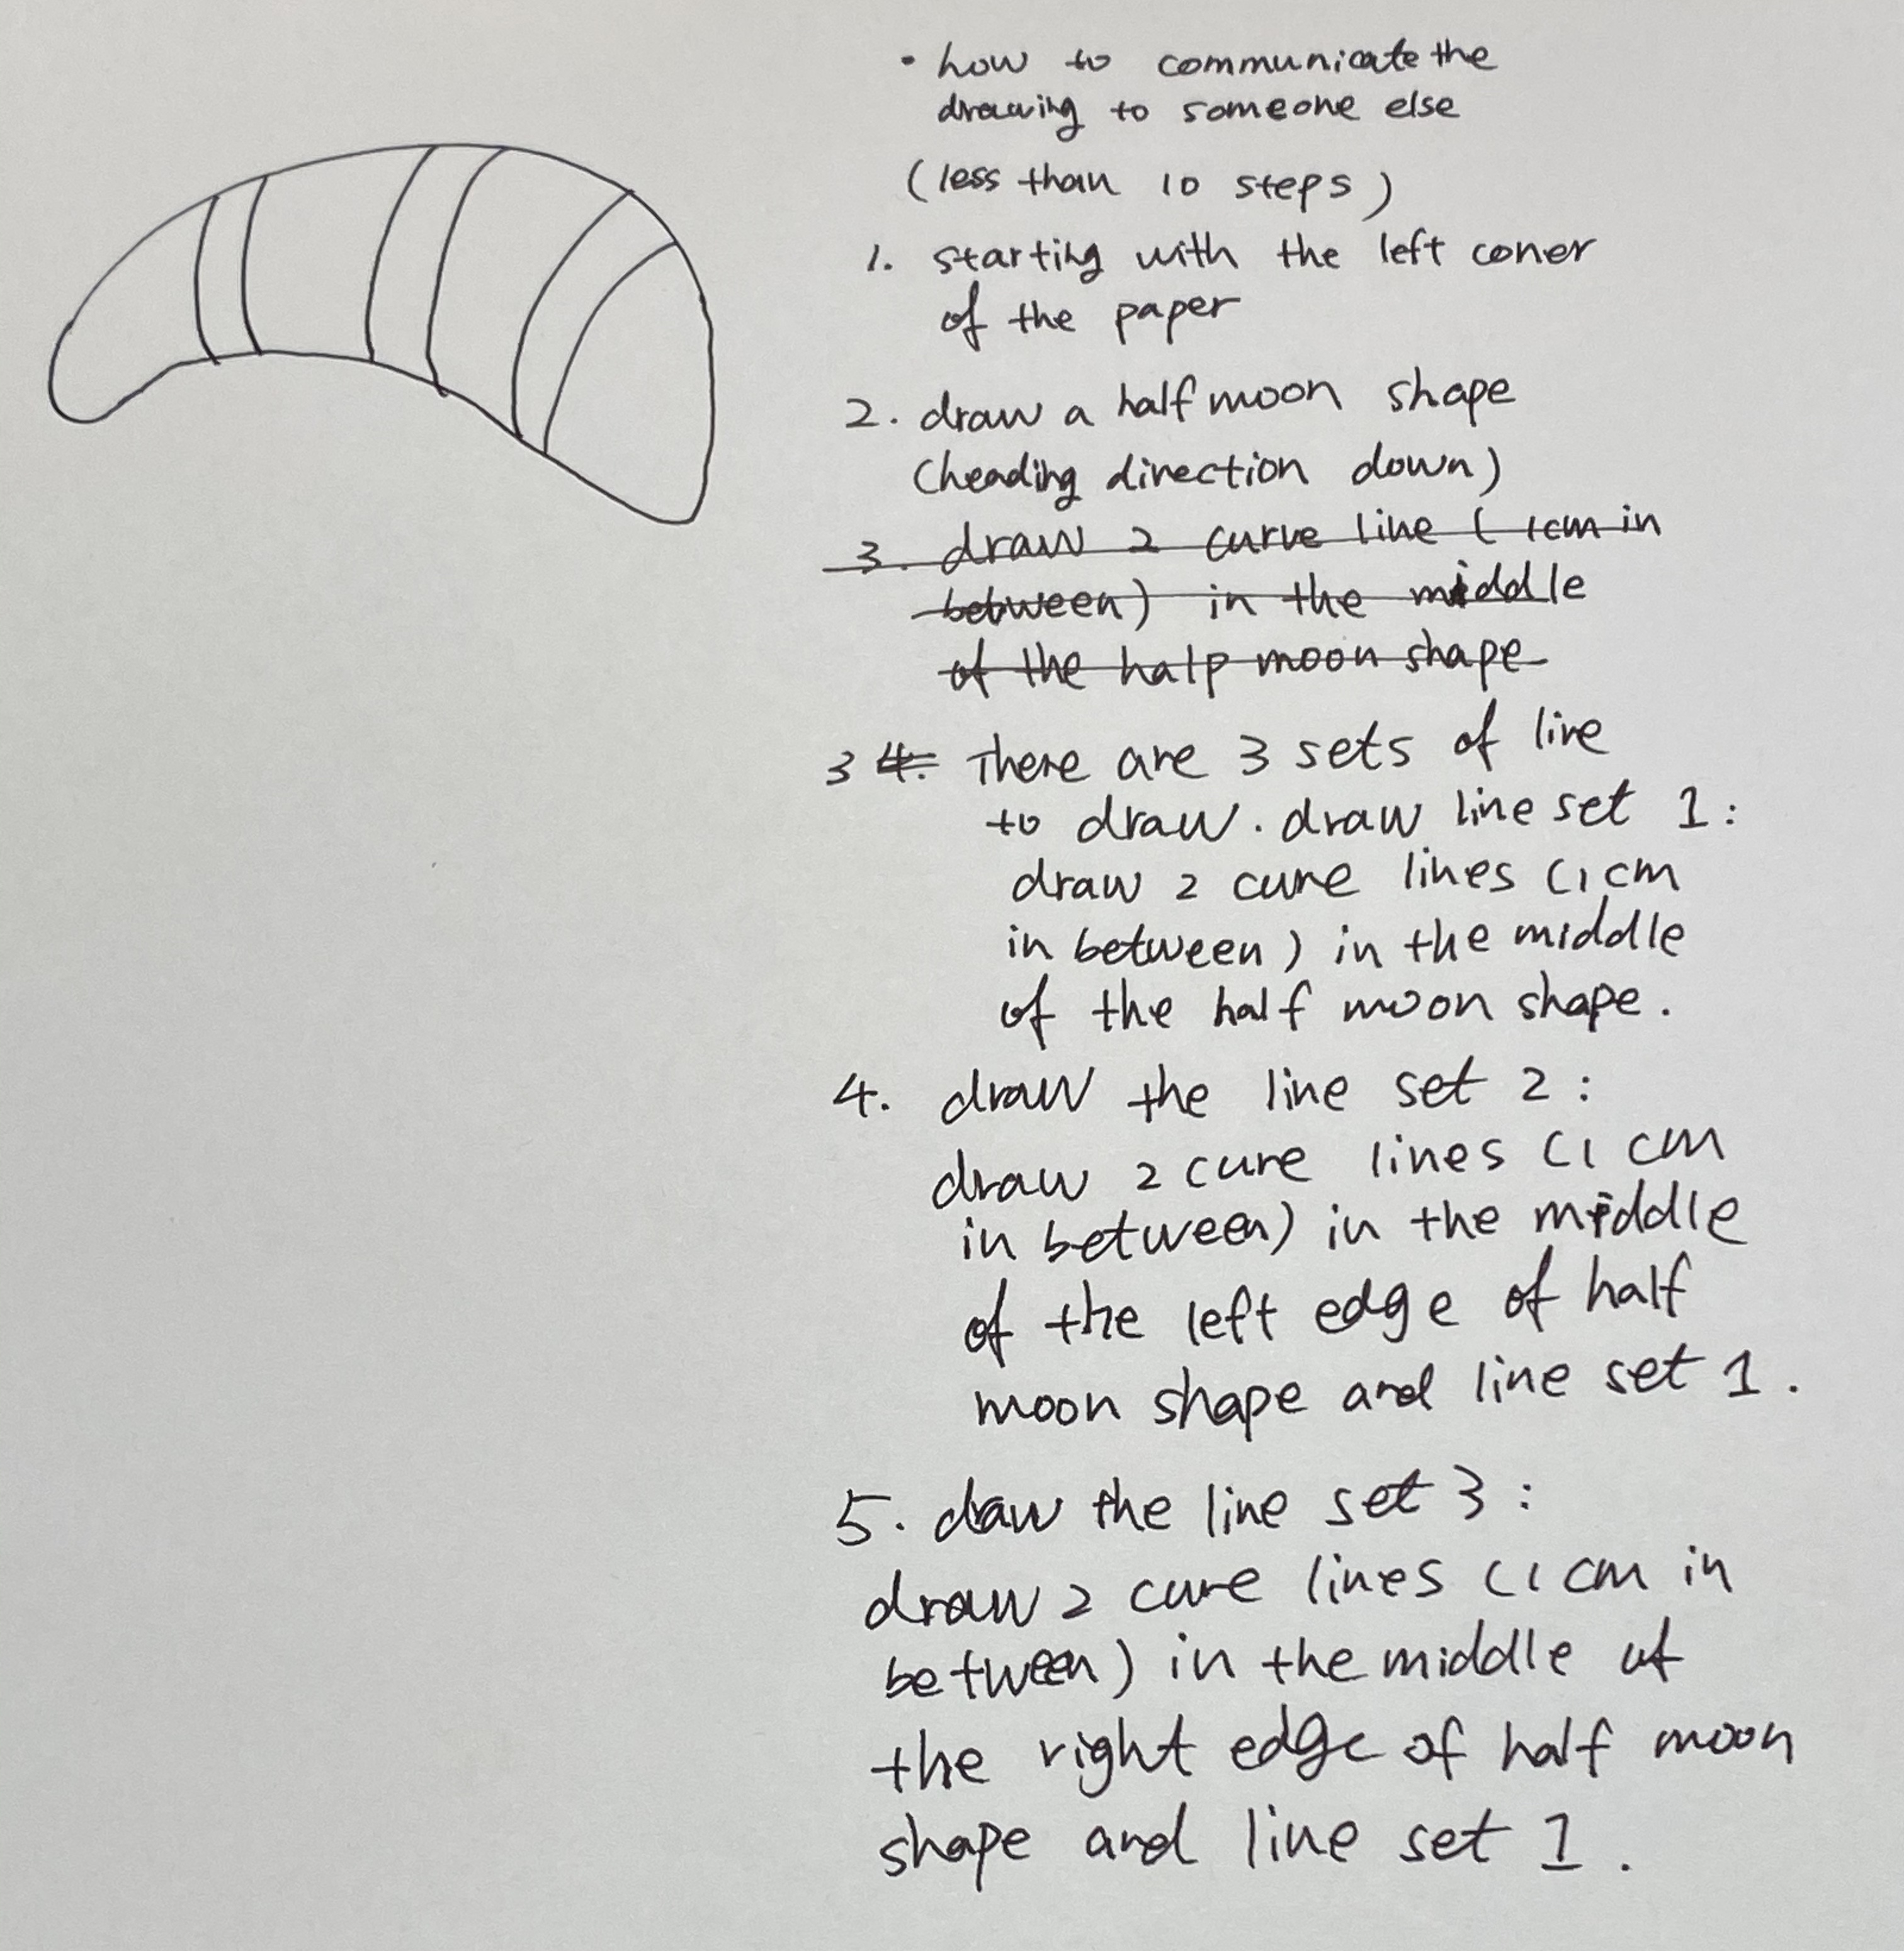 • how to communicate the
drawing to someone else
(less than 10 steps)
1. starting with the left coner
of the paper
2. draw a half moon shape
(heading direction down)
3. draw 2 curve line (1cm in
between) in the middle
of the halp moon shape
3 4. There are 3 sets of line
to draw. draw line set 1:
draw 2 cure lines (1 cm
in between) in the middle
of the half moon shape.
4. draw the line set 2:
draw 2 cure lines (1 cm
in between) in the middle
of the left edge of half
moon shape and line set 1.
5. daw the line set 3:
draw 2 cure lines (1 cm in
between) in the middle of
the right edge of half moon
shape and line set 1.